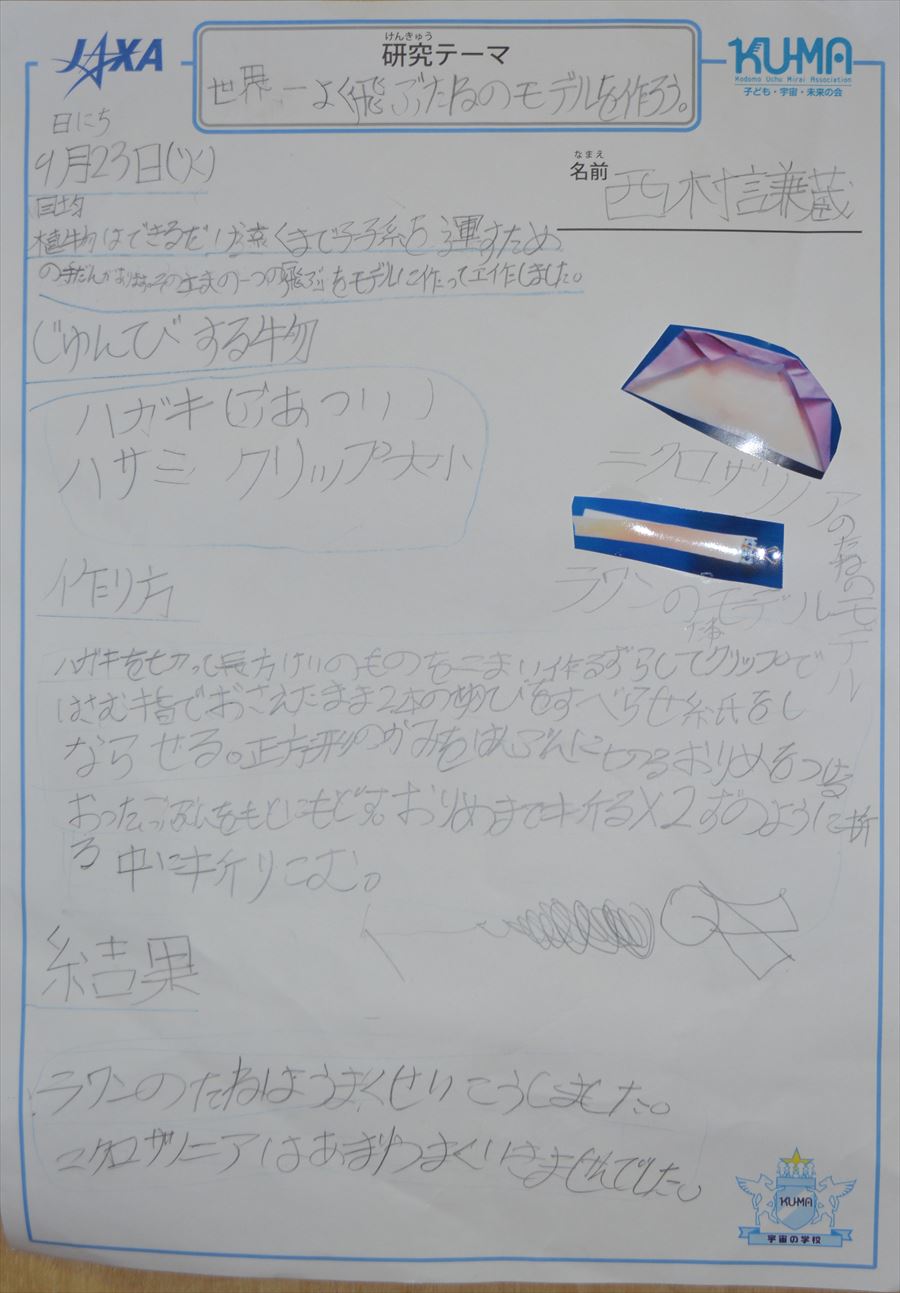 JAXA
けんきゅう
研究テーマ
KU-MA
Kodomo Uchu Mirai Association
子ども・宇宙・未来の会
世界一よく飛ぶたねのモデルを作ろう。
日にち
9月23日(火)
なまえ
名前 西村信謙蔵
目的
植物はできるだけ遠くまで子孫を運すため
の手だんがあります。そのままの一つの飛ぶをモデルに作って工作しました。
じゅんびする物
ハガキ(ごあつい)
ハサミ クリップ大小
ニクロザノニアのたねのモデル
ラワンのモデル
作り方
ハガキを切って長方けいのものを二まい作るずらしてクリップで
はさむ指でおさえたまま2本の ゆびをすべらせ紙をし
ならせる。正方形のがみをはんぶんに切るおりめをつける
おったぶぶんをもとにもどす。おりめまで折る×2ずのように折
る 中に折りこむ。
結果
ラワンのたねはうまくせいこうしました。
ニクロザノニアはあまりうまくいきませんでした。
KU-MA
宇宙の学校